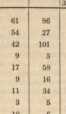 61 86
54 27
42 101
9 3
17 58
9 16
11 34
3 5